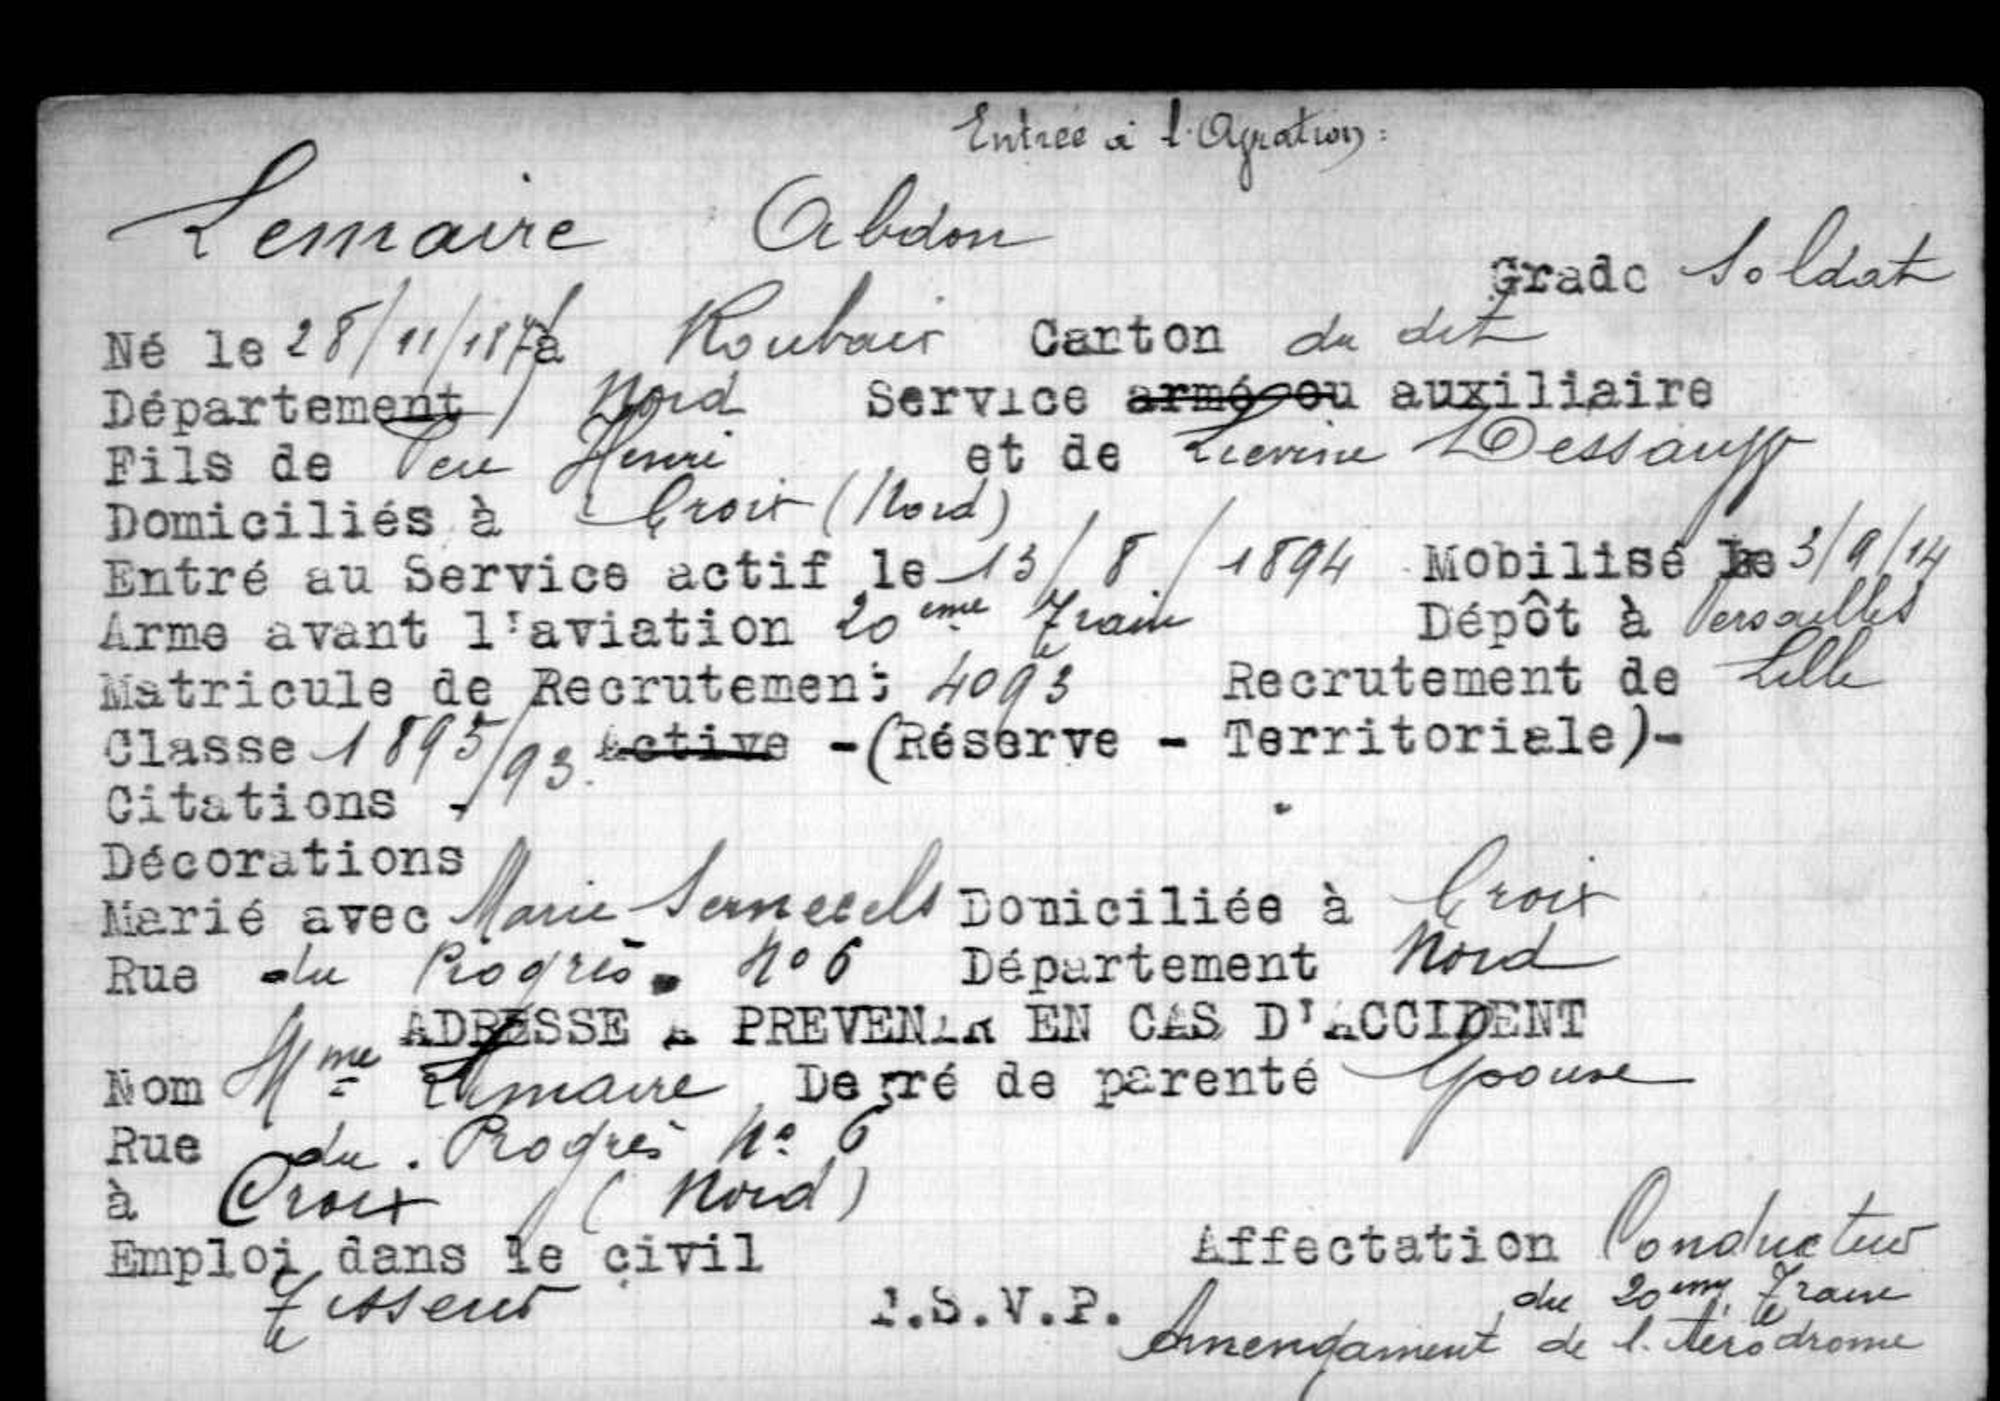 Entrée à l'Agration:
Lemaire Abdon
Grade Soldat
Né le 28/11/187 à Roubaix Canton du dit
Département Nord Service armé ou auxiliaire
Fils de Feu Henri et de Lievine
Domiciliés à Croix (Nord)
Entré au Service actif le 13/8/1894 Mobilisé le 3/9/14
Arme avant l'aviation 20ème Train Dépôt à Versailles
Matricule de Recrutement 4093 Recrutement de Lille
Classe 1895/93 Active -(Réserve - Territoriale)-
Citations -
Décorations
Marié avec Marie Domiciliée à Croix
Rue du Progrès. No 6 Département Nord
ADRESSE A PREVENIR EN CAS D'ACCIDENT
Nom Mme Lemaire Degré de parenté Epouse
Rue du. Progrès No 6
à Croix (Nord)
Emploi dans le civil Affectation Conducteur
Tisseur T.S.V.P. du 20eme Train
Amengament de l'Aérodrome